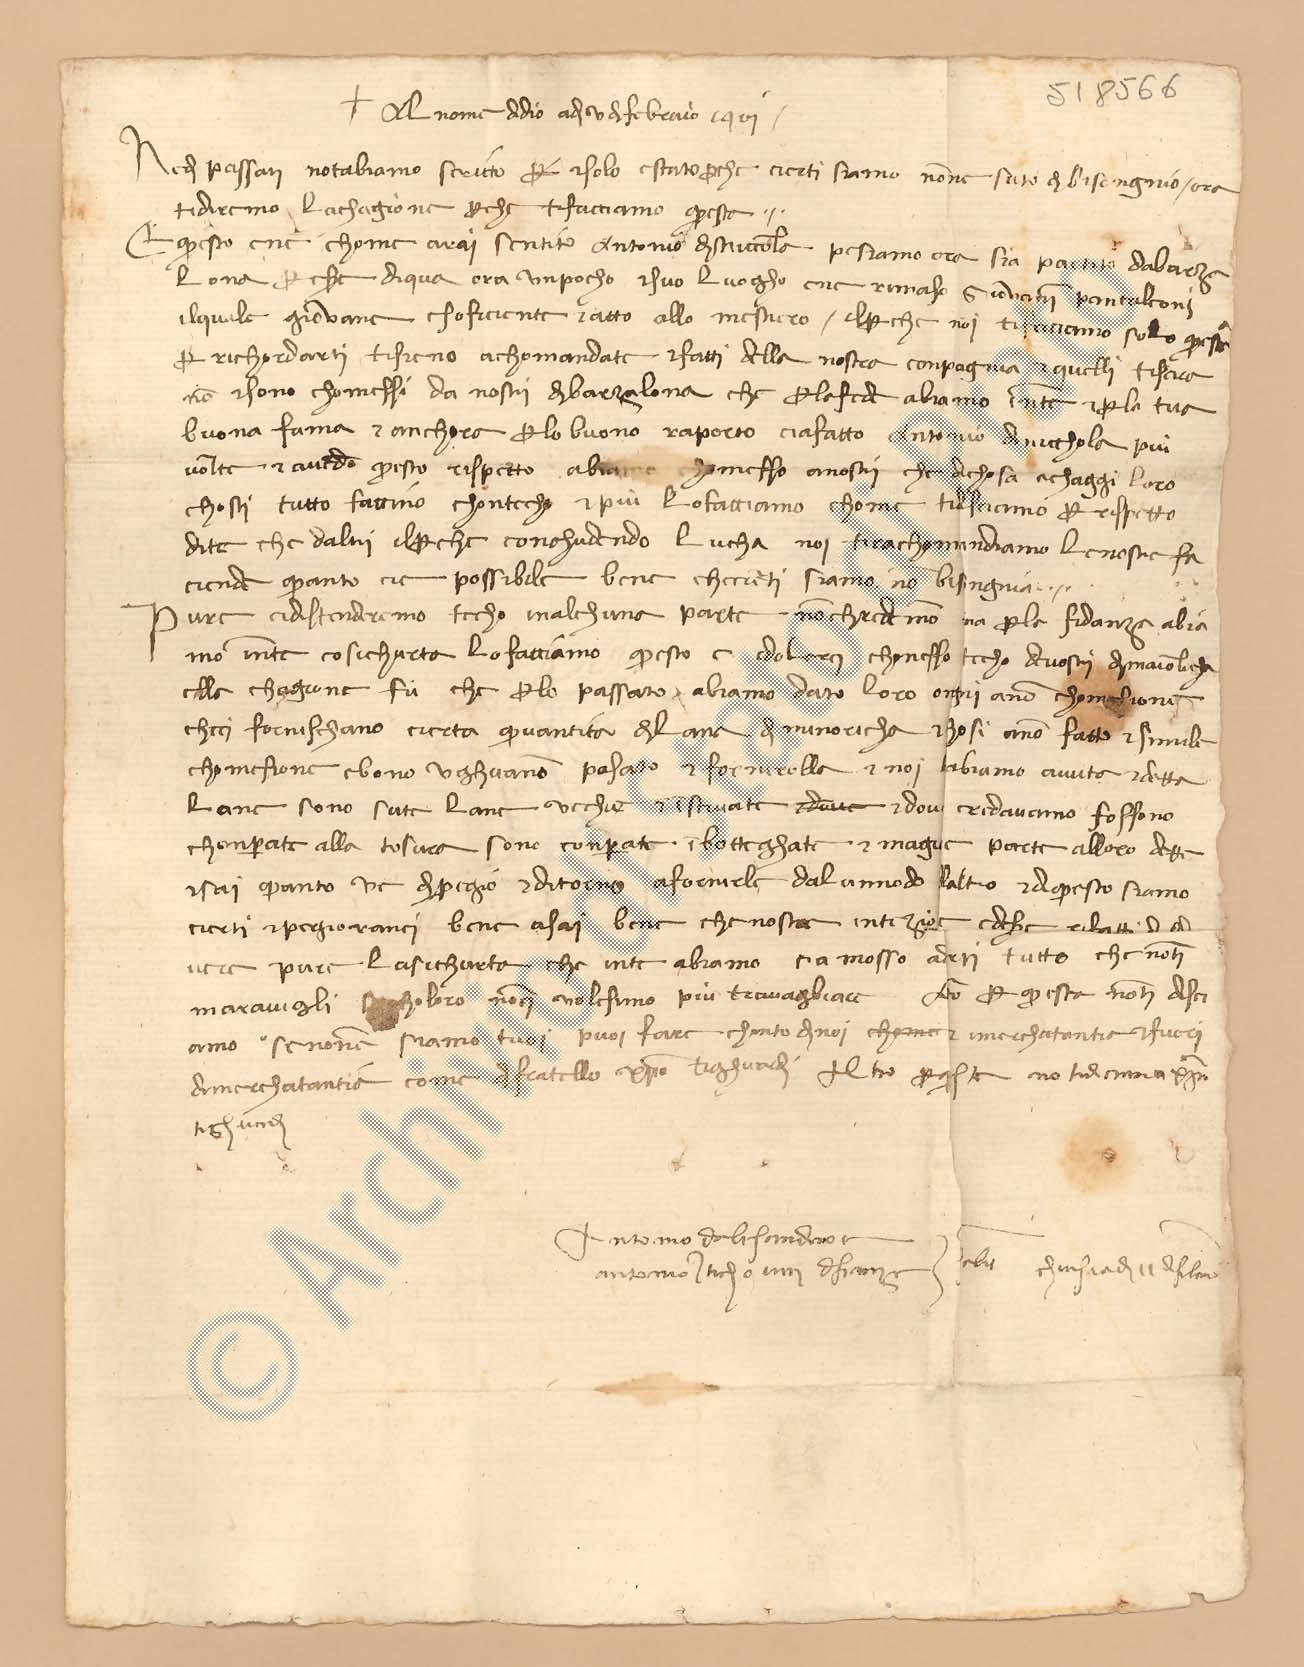 518566
+ Al nome ddio adj v dj febraio 1401
Nedj passatj notabiamo scritto per isolo estato perche cierti siamo nonne suto di bisongnio / ora
tidiremo lachagione perche tifacciamo questa
E questo ene chome arai sentito Antonio di niccholo pesiamo ora sia partito dabarza
lona per esere diqua ora unpocho isuo luogho ene rimaso Giovanni pantaleoni
ilquale giovane esoficiente e atto allo mestiero / ilperche noi tiscriviamo solo questa
per richordarti tisieno achomandate ifatti della nostra conpagnia e quelli tisara
no isono chomessi da nostri di barzalona che perlafede abiamo inte e perla tua
buona fama e anchora perlo buono raporto ciafatto Antonio di nicchola più
volte e avendo questo rispetto abiamo chomesso anostri che dichosa achaggi loro
chosti tutto faccino chontecho e più lofacciamo chome tidiciamo per rispetto
dite che daltri ilperche conchudendo Lucha noi tirachomandiamo lenostre fa
ciende quanto cie possibile bene checierti siamo non bisongnia
Pure cidistenderemo techo inalchuna parte nonchrediamo ma perla fidanza abia
mo inte cosichurta lofacciamo questo e idolerci chonesso techo de vostri di maiolicha
ella chagione fu che perlo passato abiamo dato loro ongni anno chomesione
checi fornischano cierta quantità di lana di minoricha e chosi anno fatto e simile
chomesione ebono ughuanno pasato e fornirolla e noi labiamo avuta e detta
lane sono sute lane vechie e istivate e dove e dove credavamo fossono
chonperate alla tosura sono conperate i botteghate e magior parte alloro dette
e sai quanto ve di pegio e ditorno afornirle dal unmodo laltro e diquesto siamo
cierti ipegioranci bene asai bene che nostra intezione edisere ristatti di d
vere pure lasichurta che inte abiamo cia mosso adirti tutto che nonti
maravigli secholoro nonci volesimo più travagliare Ano per questa nonti disci
amo senone siamo tuoi puoi fare chonto di noi chome e imerchatantia e fuori
dimerchatantia come difratello xpo tighuardi Altro perquesta no tidiciamo xpo
tighuardj
Antonio dalesandro e
antonio di ser Bartolomeo